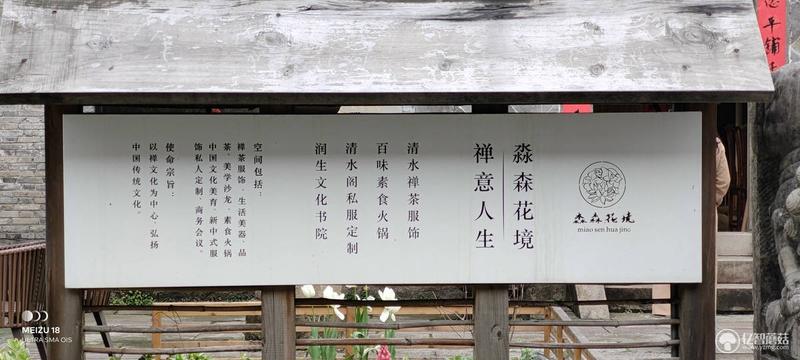 淼森花境
miao sen hua jing
淼森花境
禅意人生
清水禅茶服饰
百味素食火锅
清水阁私服定制
润生文化书院
空间包括：
禅茶服饰、生活美器、品
茶、美学沙龙、素食火锅
中国文化美育、新中式服
饰私人定制、商务会议。
使命宗旨：
以禅文化为中心，弘扬
中国传统文化。
MEIZU 18
ULTRA SMA OIS
亿智蘑菇
www.yzmg.com